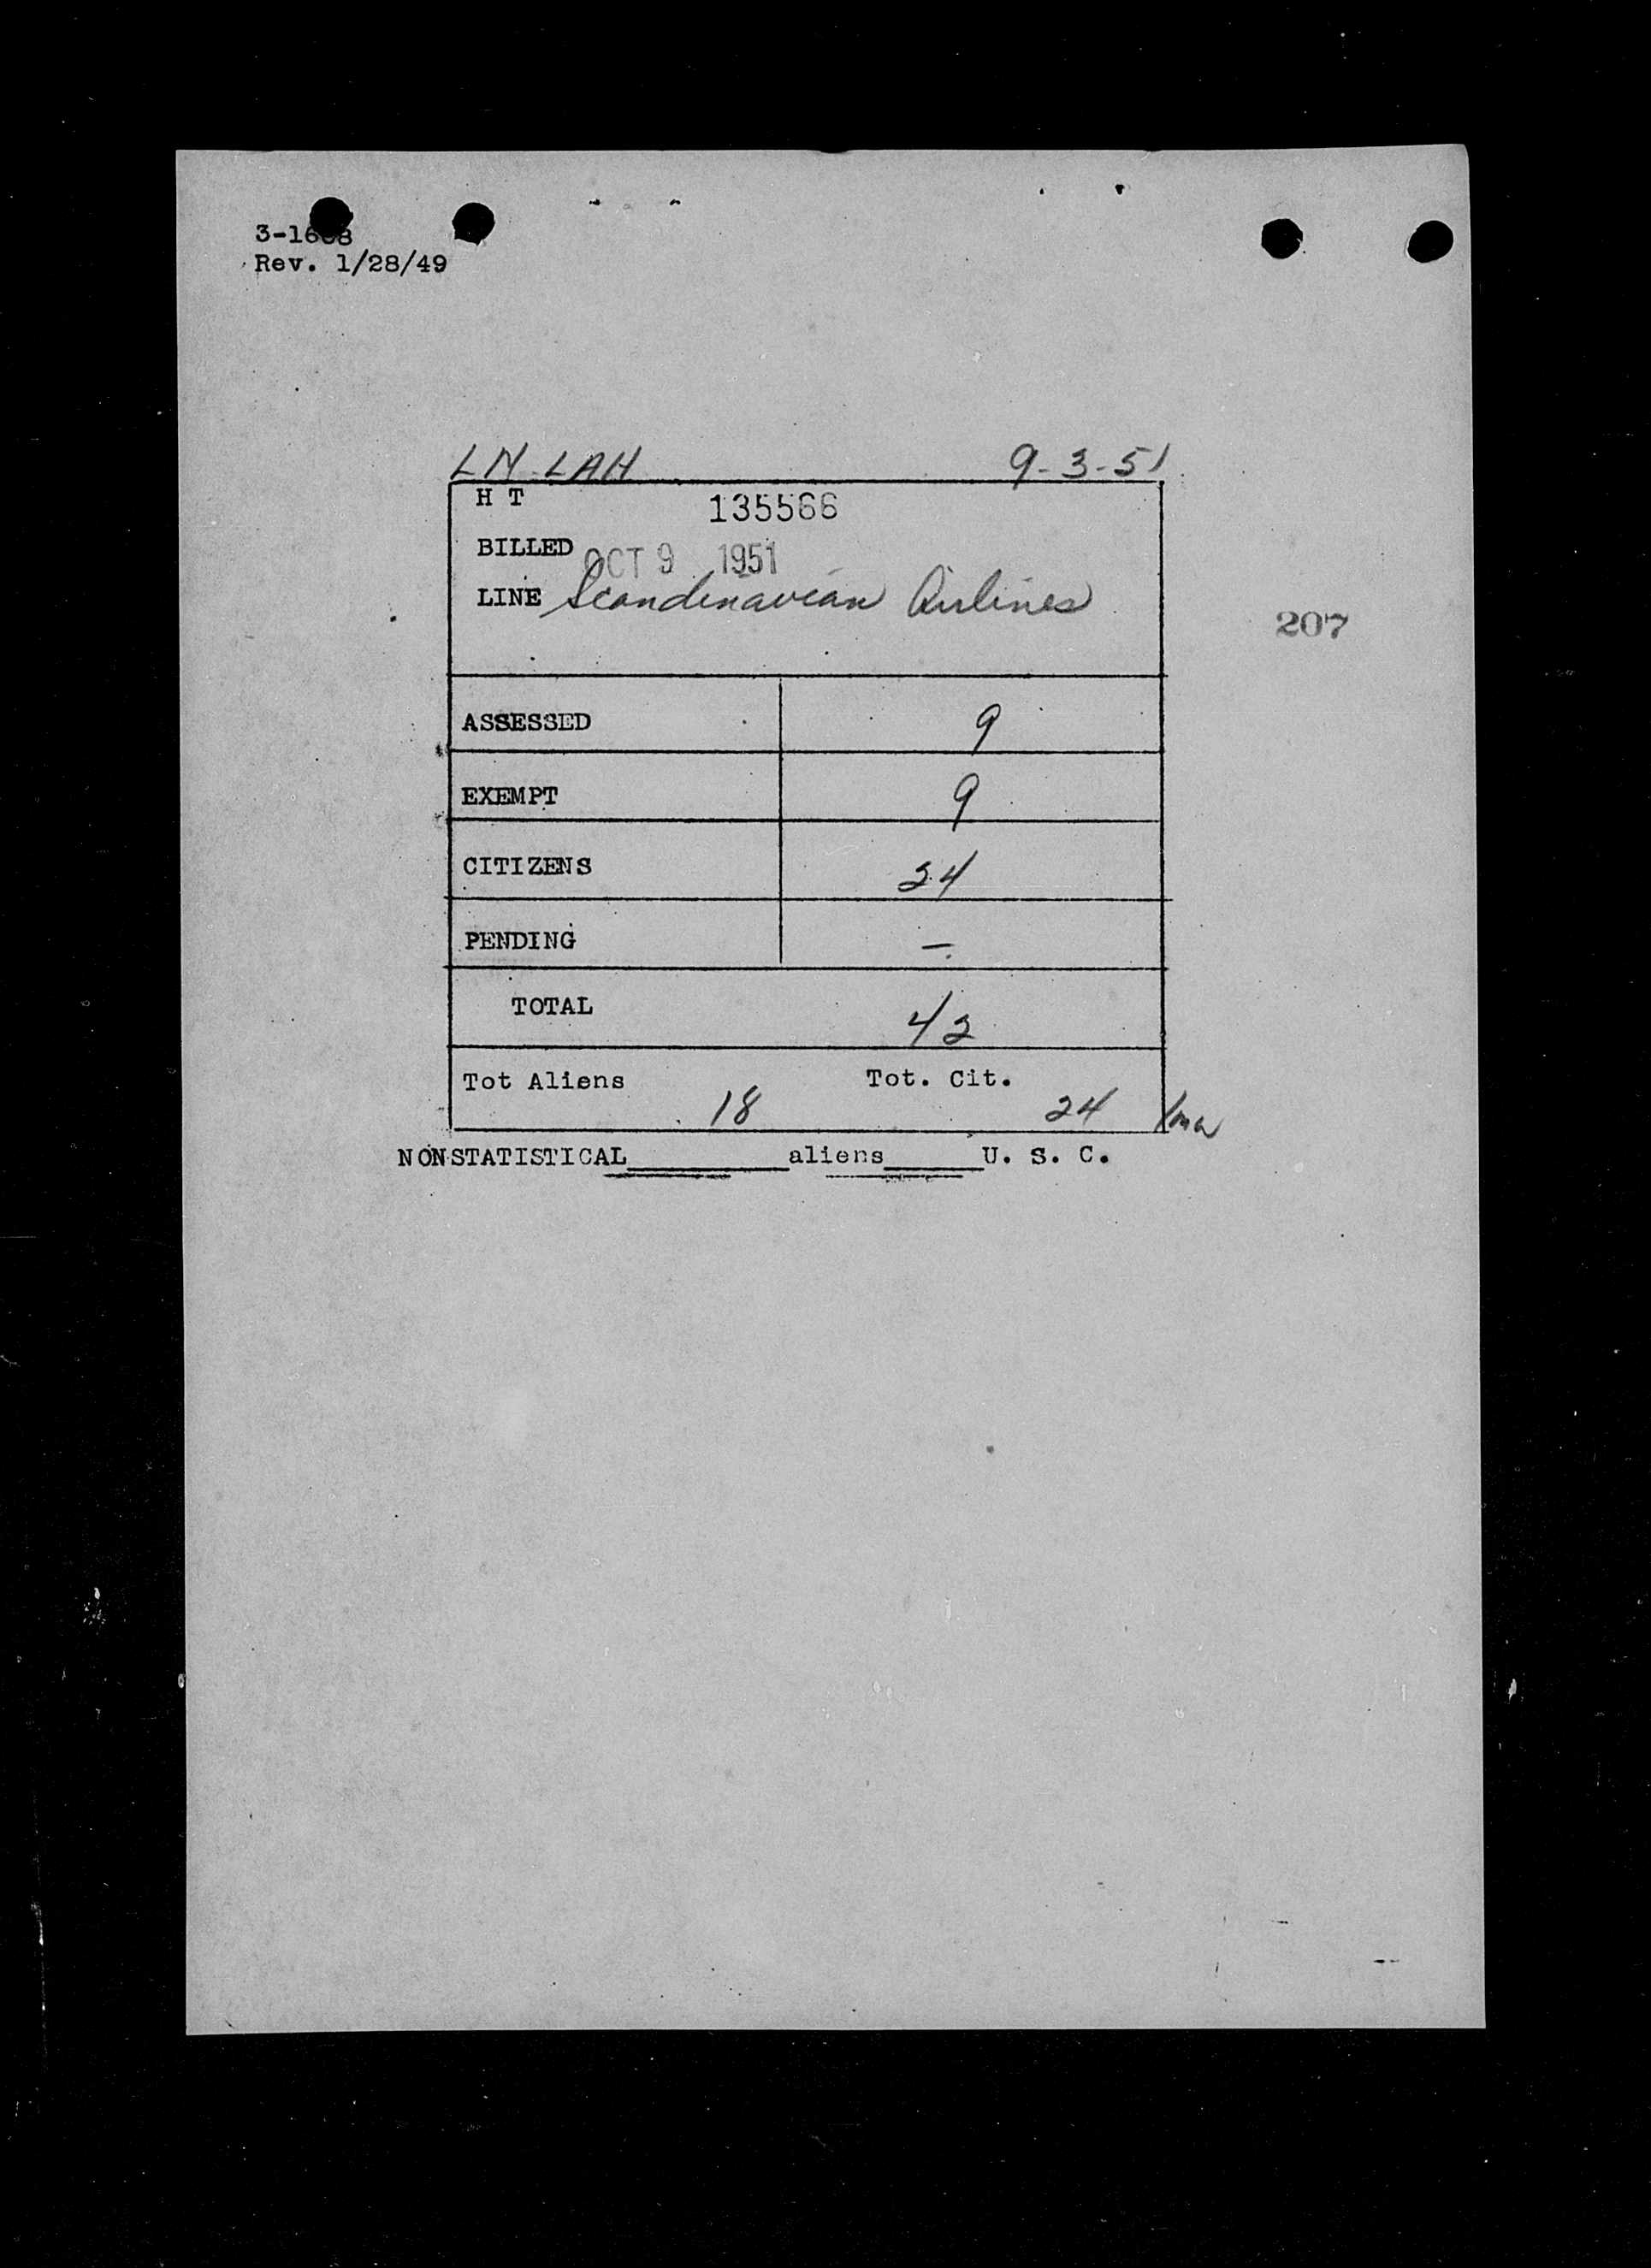 Rev. 1/28/49
LN LAH 9-3-51
H T 135566
BILLED OCT 9 1951
LINE Scandinavian Airlines
207
ASSESSED 9
EXEMPT 9
CITIZENS 24
PENDING —
TOTAL 42
Tot Aliens 18 Tot. Cit. 24
NONSTATISTICAL________aliens_____U. S. C.